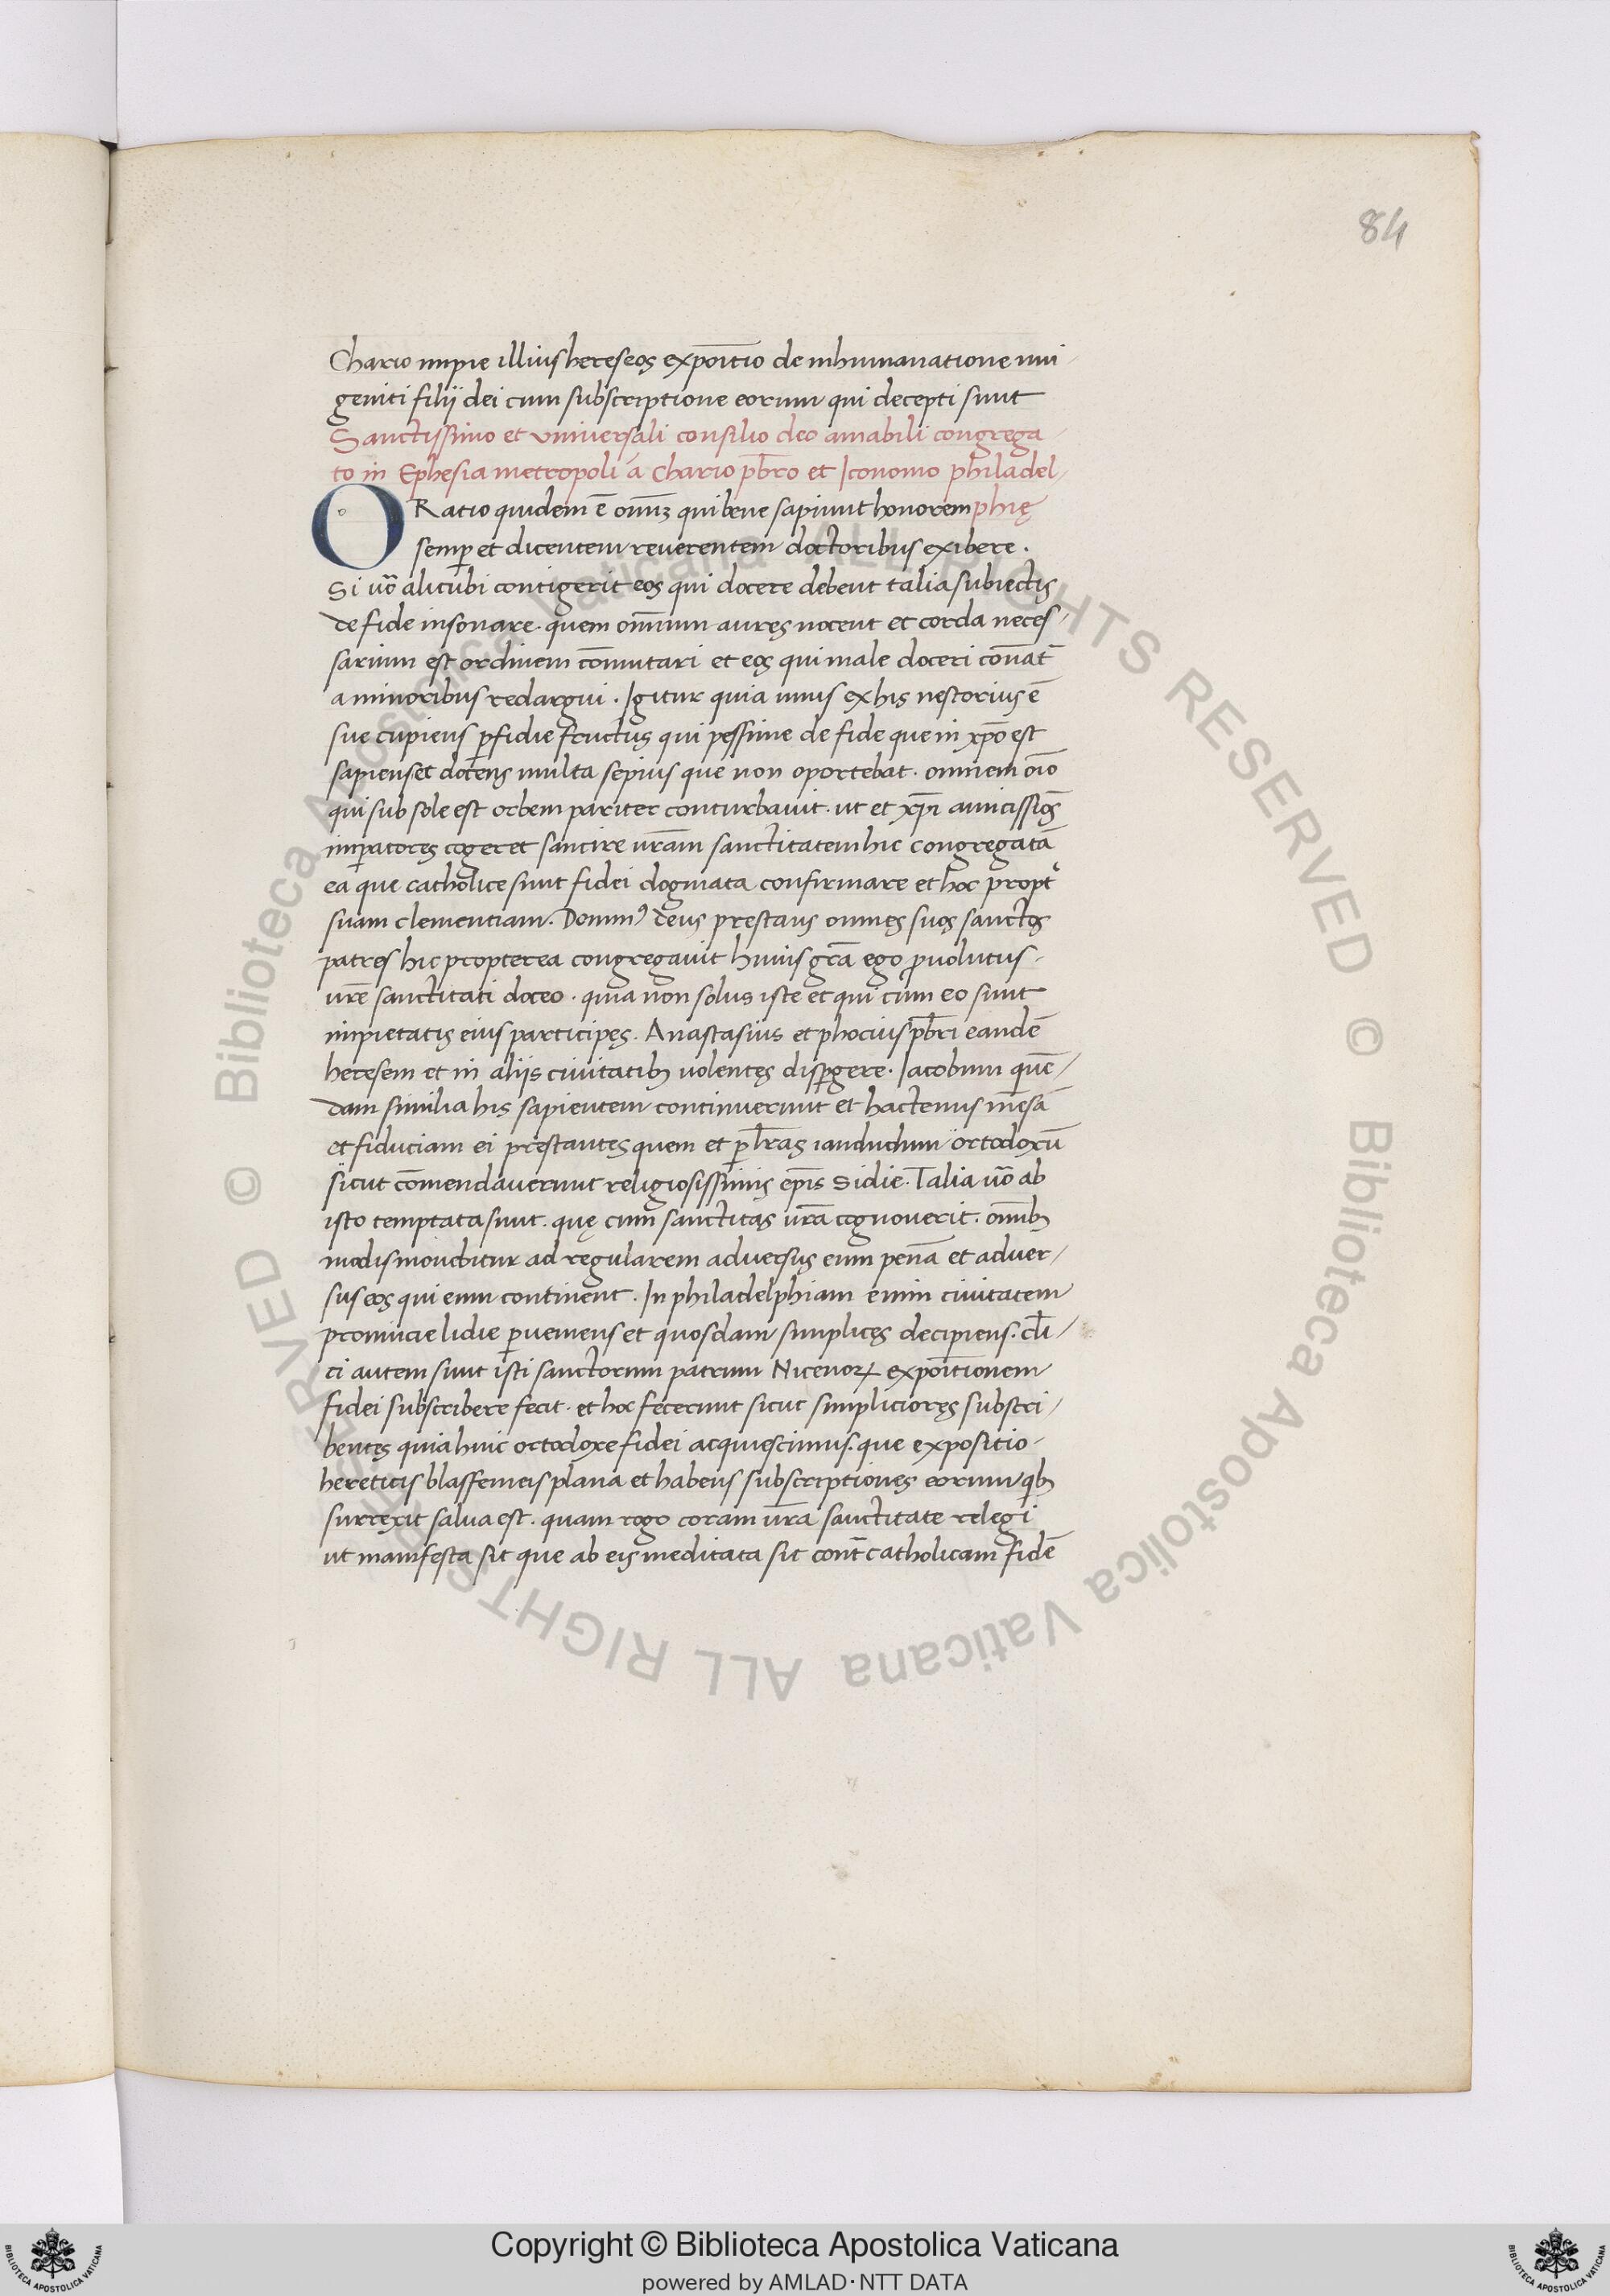 84
Chario impie illius hereseos expoitio de inhumanatione uni
geniti filij dei cum subscriptione eorum qui decepti sunt
Sanctissimo et universali consilio deo amabili congrega
to in Ephesia metropoli á Chario pb̄ro et Iconomo philadel
ORatio quidem ē om̄iuꝫ qui bene sapiunt honorem phię
semꝑ et dicentem reverentem doctoribus exibere.
Si ūo alicubi contigerit eos qui docere debent talia subiectis
de fide insonare. quem om̄ium aures nocent et corda neces
sarium est ordinem com̄utari et eos qui male doceri conāt
a minoribus redargui. Igitur quia unus ex his nestorius ē
sue cupiens ꝑfidie fructus qui pessime de fide que in xp̄o est
sapiens et docens multa sepius que non oportebat. omnem oīo
qui sub sole est orbem pariter conturbavit. ut et xp̄i amicissiōs
imꝑatores cogeret sancire vr̄am sanctitatem hic congregatā
ea que catholice sunt fidei dogmata confirmare et hoc propt
suam clementiam. Dominꝰ deus prestans omnes suos sanctos
patres hic propterea congregavit huius gr̄a ego ꝓvolutus
vr̄e sanctitati doceo. quia non solus iste et qui cum eo sunt
impietatis eius participes. Anastasius et phocius pb̄ri eandē
heresem et in aliis civitatibꝫ volentes disꝑgere. Iacobum quē
dam similia his sapientem continuerunt et hactenus mēsā
et fiduciam ei prestantes quem et ꝑ l̄ras iandudum ortodoxū
sicut com̄endaverunt religiosissimis ep̄is Sidie. Talia ūo ab
isto temptata sunt. quę cum sanctitas vr̄a cognoverit. om̄ibꝫ
modis movebitur ad regularem adversus eum penā et adver
sus eos qui eum continent. In philadelphiam enim civitatem
provincie lidie ꝑveniens et quosdam simplices decipiens. cl̄i
ci autem sunt isti sanctorum patrum Nicenoꝝ expoitionem
fidei subscribere fecit. et hoc fecerunt sicut simpliciores subscri
bentes quia huic ortodoxe fidei acquiescimus. que expositio
hereticis blassfemeis plana et habens subscriptiones eorum qibꝫ
surrexit salva est. quam rogo coram vr̄a sanctitate relegi
ut manifesta sit que ab eis meditata sit cont̄ catholicam fidē
© Biblioteca Apostolica Vaticana ALL RIGHTS RESERVED © Biblioteca Apostolica Vaticana ALL RIGHTS RESERVED
Copyright © Biblioteca Apostolica Vaticana
powered by AMLAD·NTT DATA
BIBLIOTECA APOSTOLICA VATICANA
BIBLIOTECA APOSTOLICA VATICANA